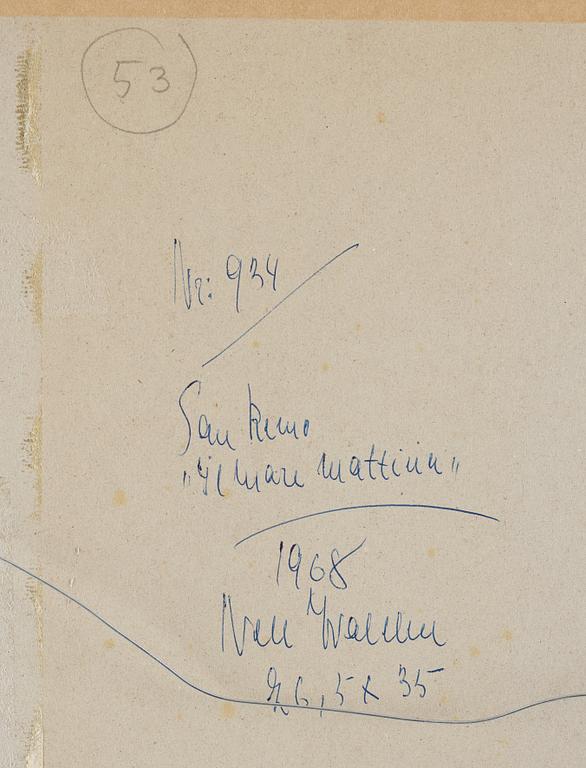 53
Nr: 934
San Remo
"Il mare mattina"
1968
Nell Walden
26,5 x 35